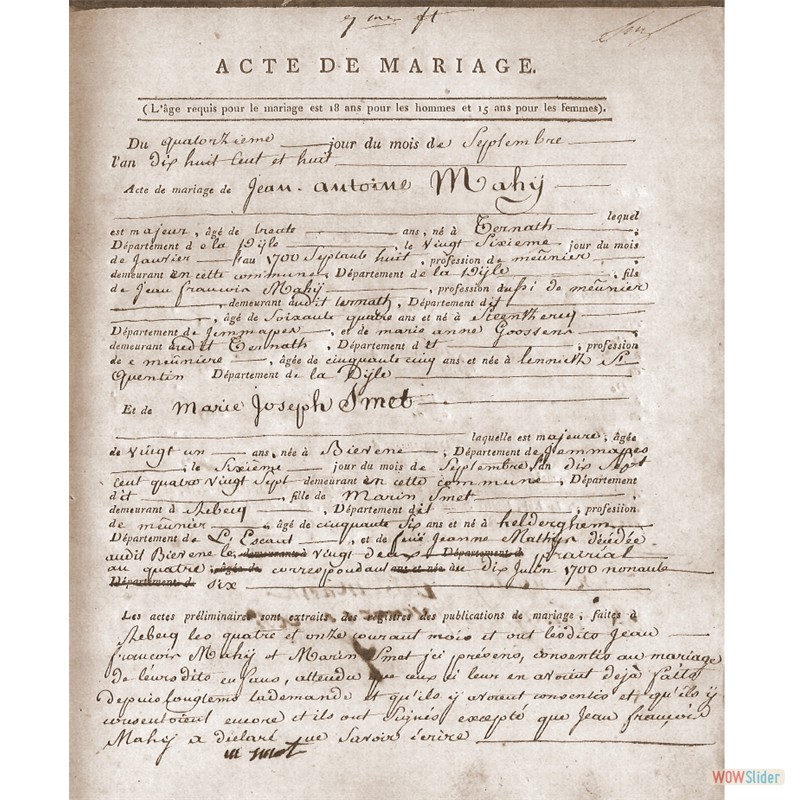 9 me ft
ACTE DE MARIAGE.
(L'âge requis pour le mariage est 18 ans pour les hommes et 15 ans pour les femmes).
Du quatorzieme jour du mois de Septembre
l'an dix huit Cent et huit
Acte de mariage de Jean antoine Mahÿ
lequel
est majeur, âgé de trente ans, né à Ternath
Département d e la Dÿle, le Vingt Sixieme jour du mois
de Janvier au 1700 Septante huit, profession de meûnier,
demeurant en cette commune, Département de la Dÿle, fils
de Jean francoir Mahÿ, profession aussi de meûnier
, demeurant audit ternath, Département dit
, âgé de Soixante quatre ans et né à Steenkercq
Département de Jemmappes, et de marie anne Goossens
demeurant audit Ternath, Département dit, profession
de e meûniere, âgée de cinquante cinq ans et née à lennick St
Quentin Département de la Dÿle
Et de Marie Joseph Smet
laquelle est majeure, âgée
de Vingt un ans, née à Bievene, Département de Jemmappes
, le Sixième jour du mois de Septembre l'an dix Sept
Cent quatre Vingt Sept demeurant en cette commune, Département
dit, fille de Marin Smet
demeurant à Rebecq, Département dit, profession
de meûnier, âgé de cinquante Six ans et né à helderghem
Département de L'Escaut, et de feüe Jeanne Mathÿs décédée
audit Bievene le demeurante Vingt deux Département d prairial
au quatre, âgée de correspondant ans et née àu dix Juin 1700 nonante
Département d six
Les actes préliminaires sont extraits des registres des publications de mariage, faites à
Rebecq les quatre et onze courant mois et ont lesdits Jean
francoir Mahÿ et Marin Smet ici présens, consentis au mariage
de leursdits enfans, attendu que ceux ci leur en avoient dejà faits
depuis longtems la demande et qu'ils ÿ avoient consentis et qu'ils ÿ
consentoient encore et ils ont Signés excepté que Jean françois
Mahÿ a déclaré ne Savoir écrire
m smet
WOWSlider